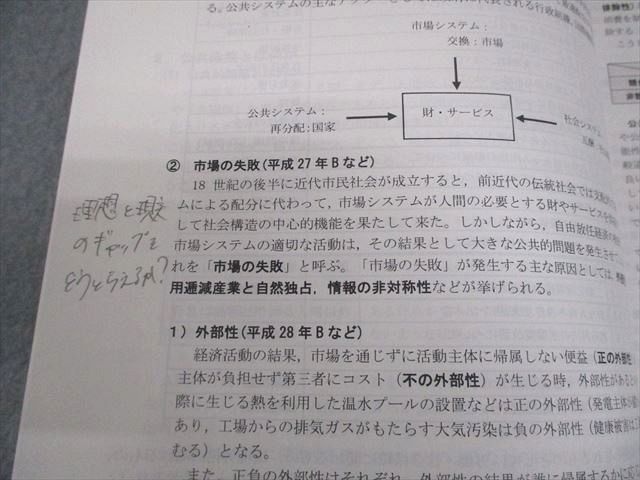 る。公共システムの主なアクター
に代表される行政組織
市場システム：
交換：市場
公共システム：
再分配：国家
財・サービス
社会システム
② 市場の失敗(平成 27 年 B など)
18 世紀の後半に近代市民社会が成立すると，前近代の伝統社会では支配的
ムによる配分に代わって，市場システムが人間の必要とする財やサービスを
して社会構造の中心的機能を果たして来た。しかしながら，自由放任経済の
市場システムの適切な活動は，その結果として大きな公共的問題を発生させ
れを「市場の失敗」と呼ぶ。「市場の失敗」が発生する主な原因としては，
用逓減産業と自然独占，情報の非対称性などが挙げられる。
理想と現実
のギャップを
どうとらえるか？
1）外部性(平成 28 年 B など)
経済活動の結果，市場を通じずに活動主体に帰属しない便益（正の外部性
主体が負担せず第三者にコスト（不の外部性）が生じる時，外部性があると
際に生じる熱を利用した温水プールの設置などは正の外部性（発電主体が
あり，工場からの排気ガスがもたらす大気汚染は負の外部性（健康被害は
むる）となる。
また，正負の外部性はそれぞれ，外部性の結果が誰に帰属するかに